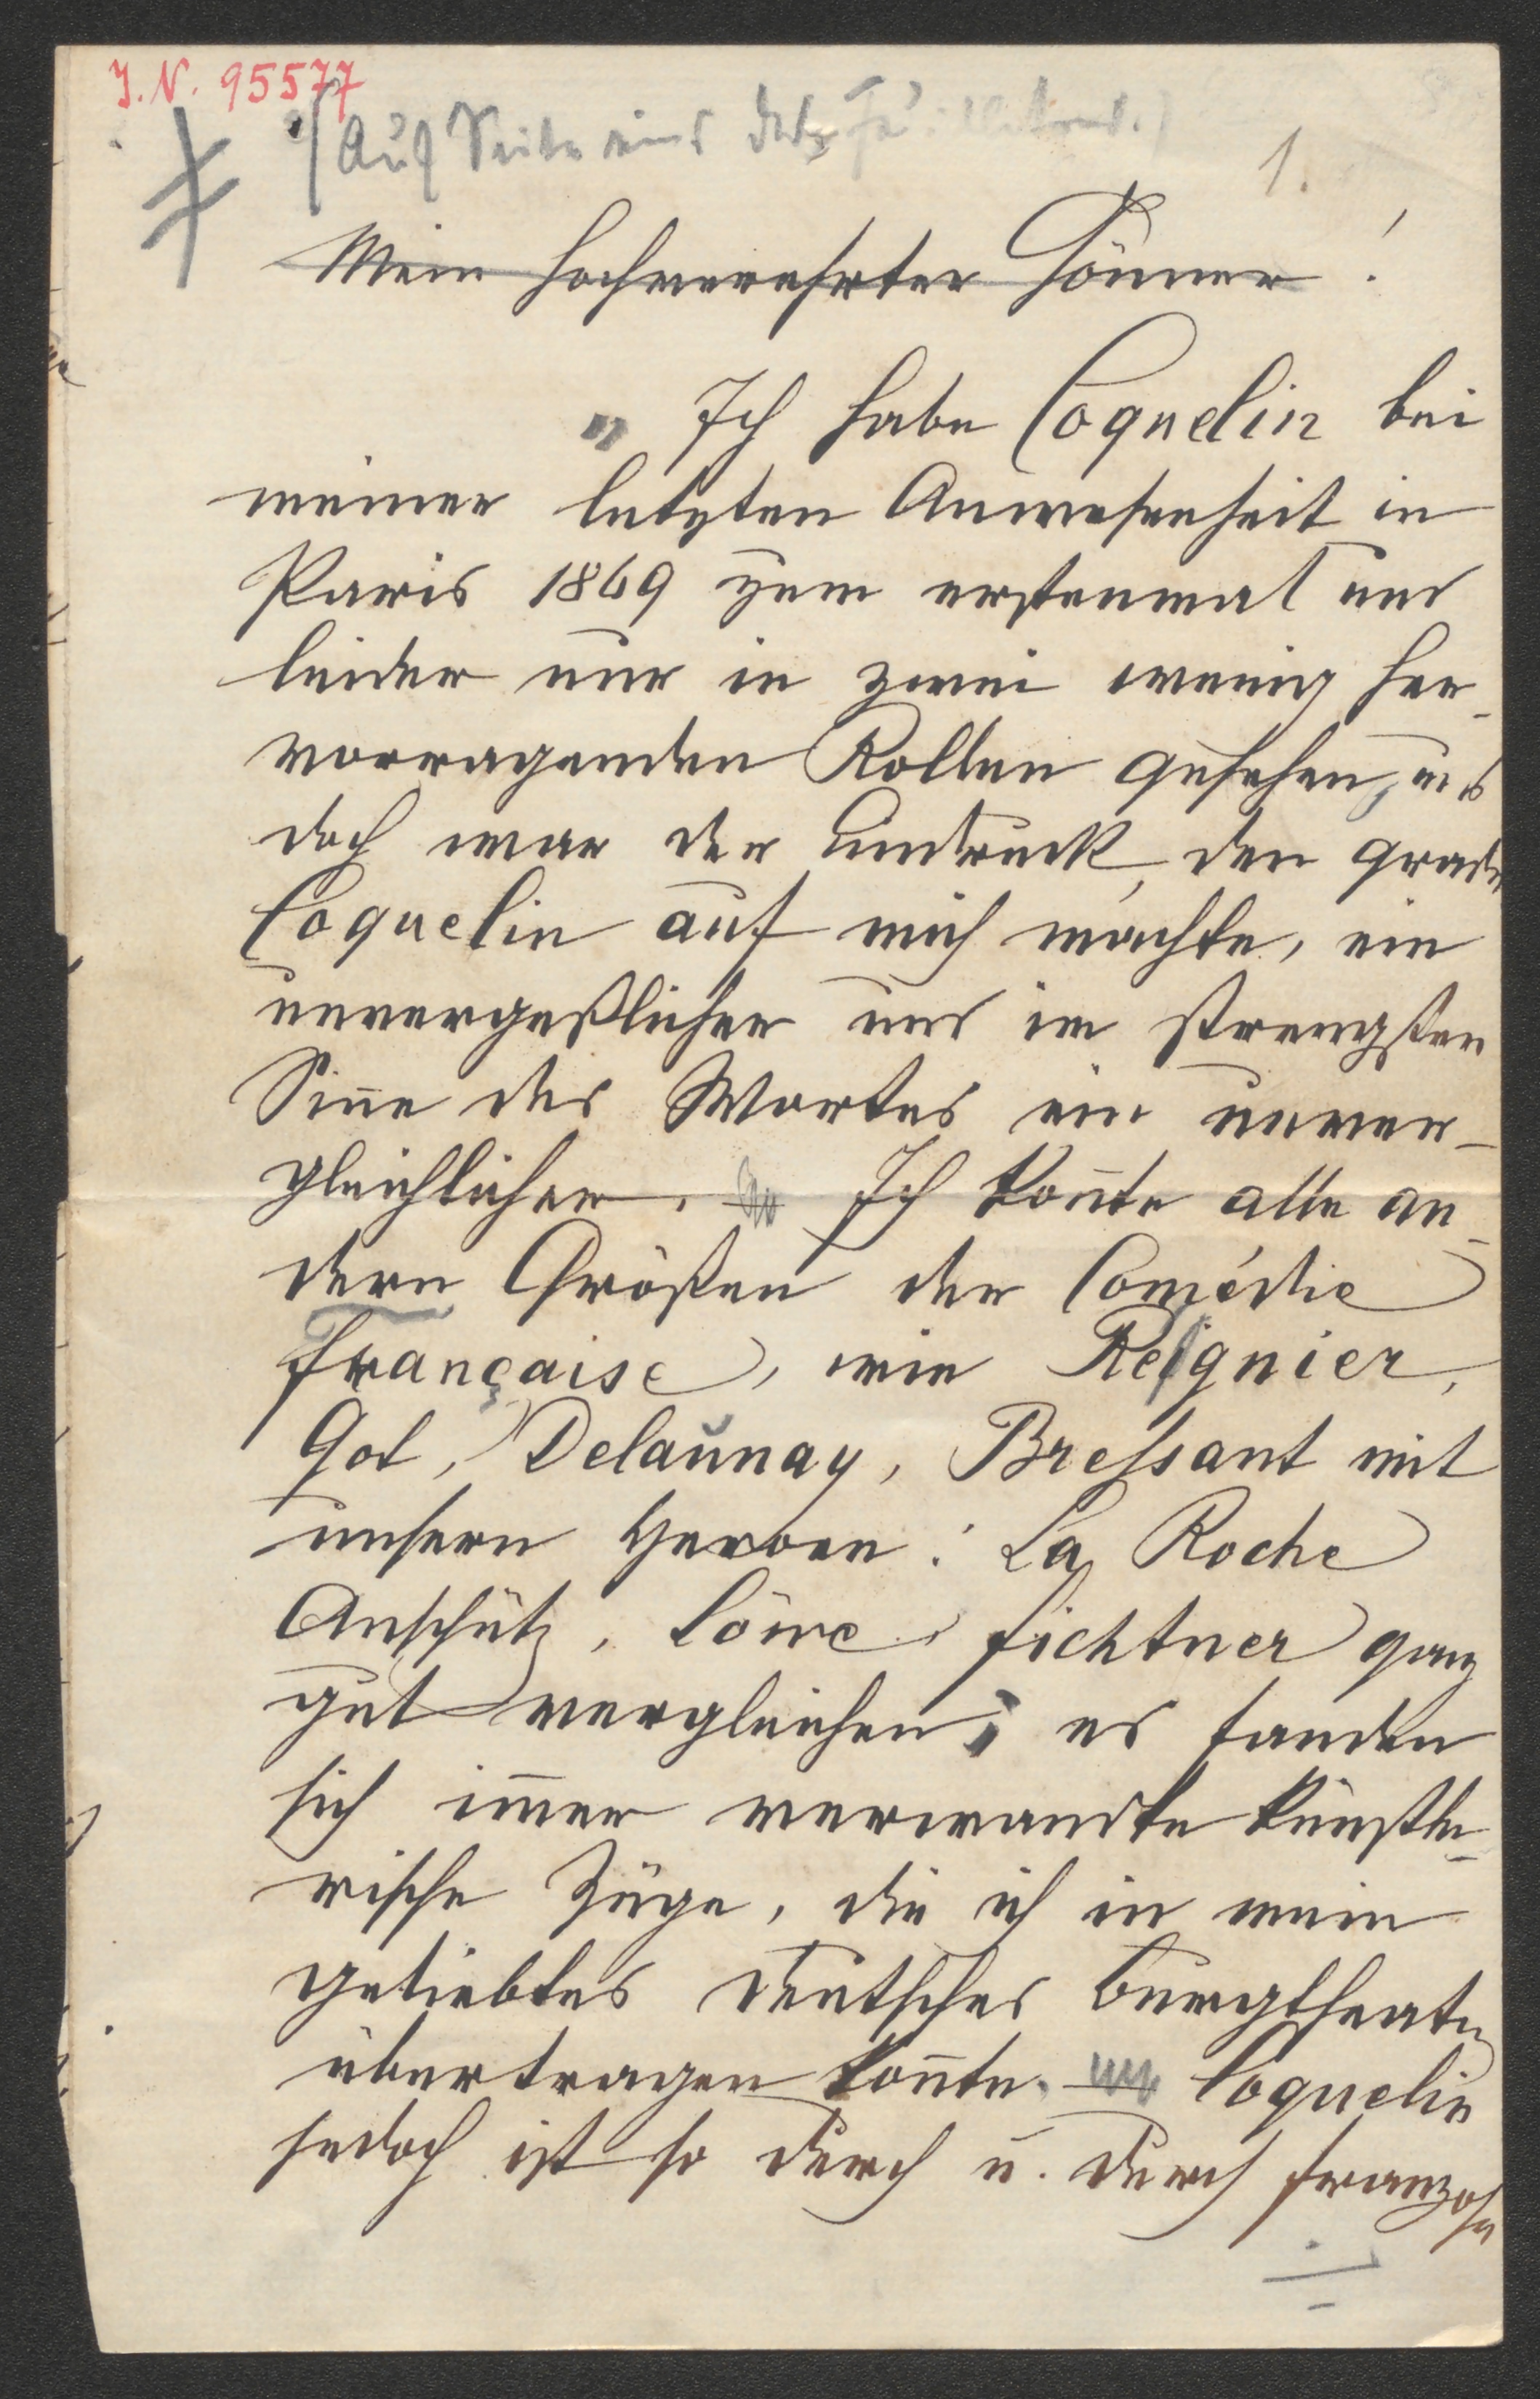 I. N. 95577
(Auf Seite eins des Feuilletons.)
1.
Mein hochverehrter Gönner!
„Ich habe Coquelin bei
meiner letzten Anwesenheit in
Paris 1869 zum erstenmal und
leider nur in zwei wenig her-
vorragenden Rollen gesehen, und
doch war der Eindruck, den grade
Coquelin auf mich machte, ein
unvergeßlicher und im strengsten
Sin̄e des Wortes ein unver-
gleichlicher. Ich kon̄te alle an-
dern Größen der Comédie
française, wie Reignier,
Got, Delaunay, Bressant mit
unsern Heroen: La Roche
Anschütz, Löwe, Fichtner ganz
gut vergleichen; es fanden
sich im̄er verwandte künstle-
rische Züge, die ich in mein
geliebtes deutsches Burgtheater
übertragen kon̄te. Coquelin
jedoch ist so durch u. durch Franzose